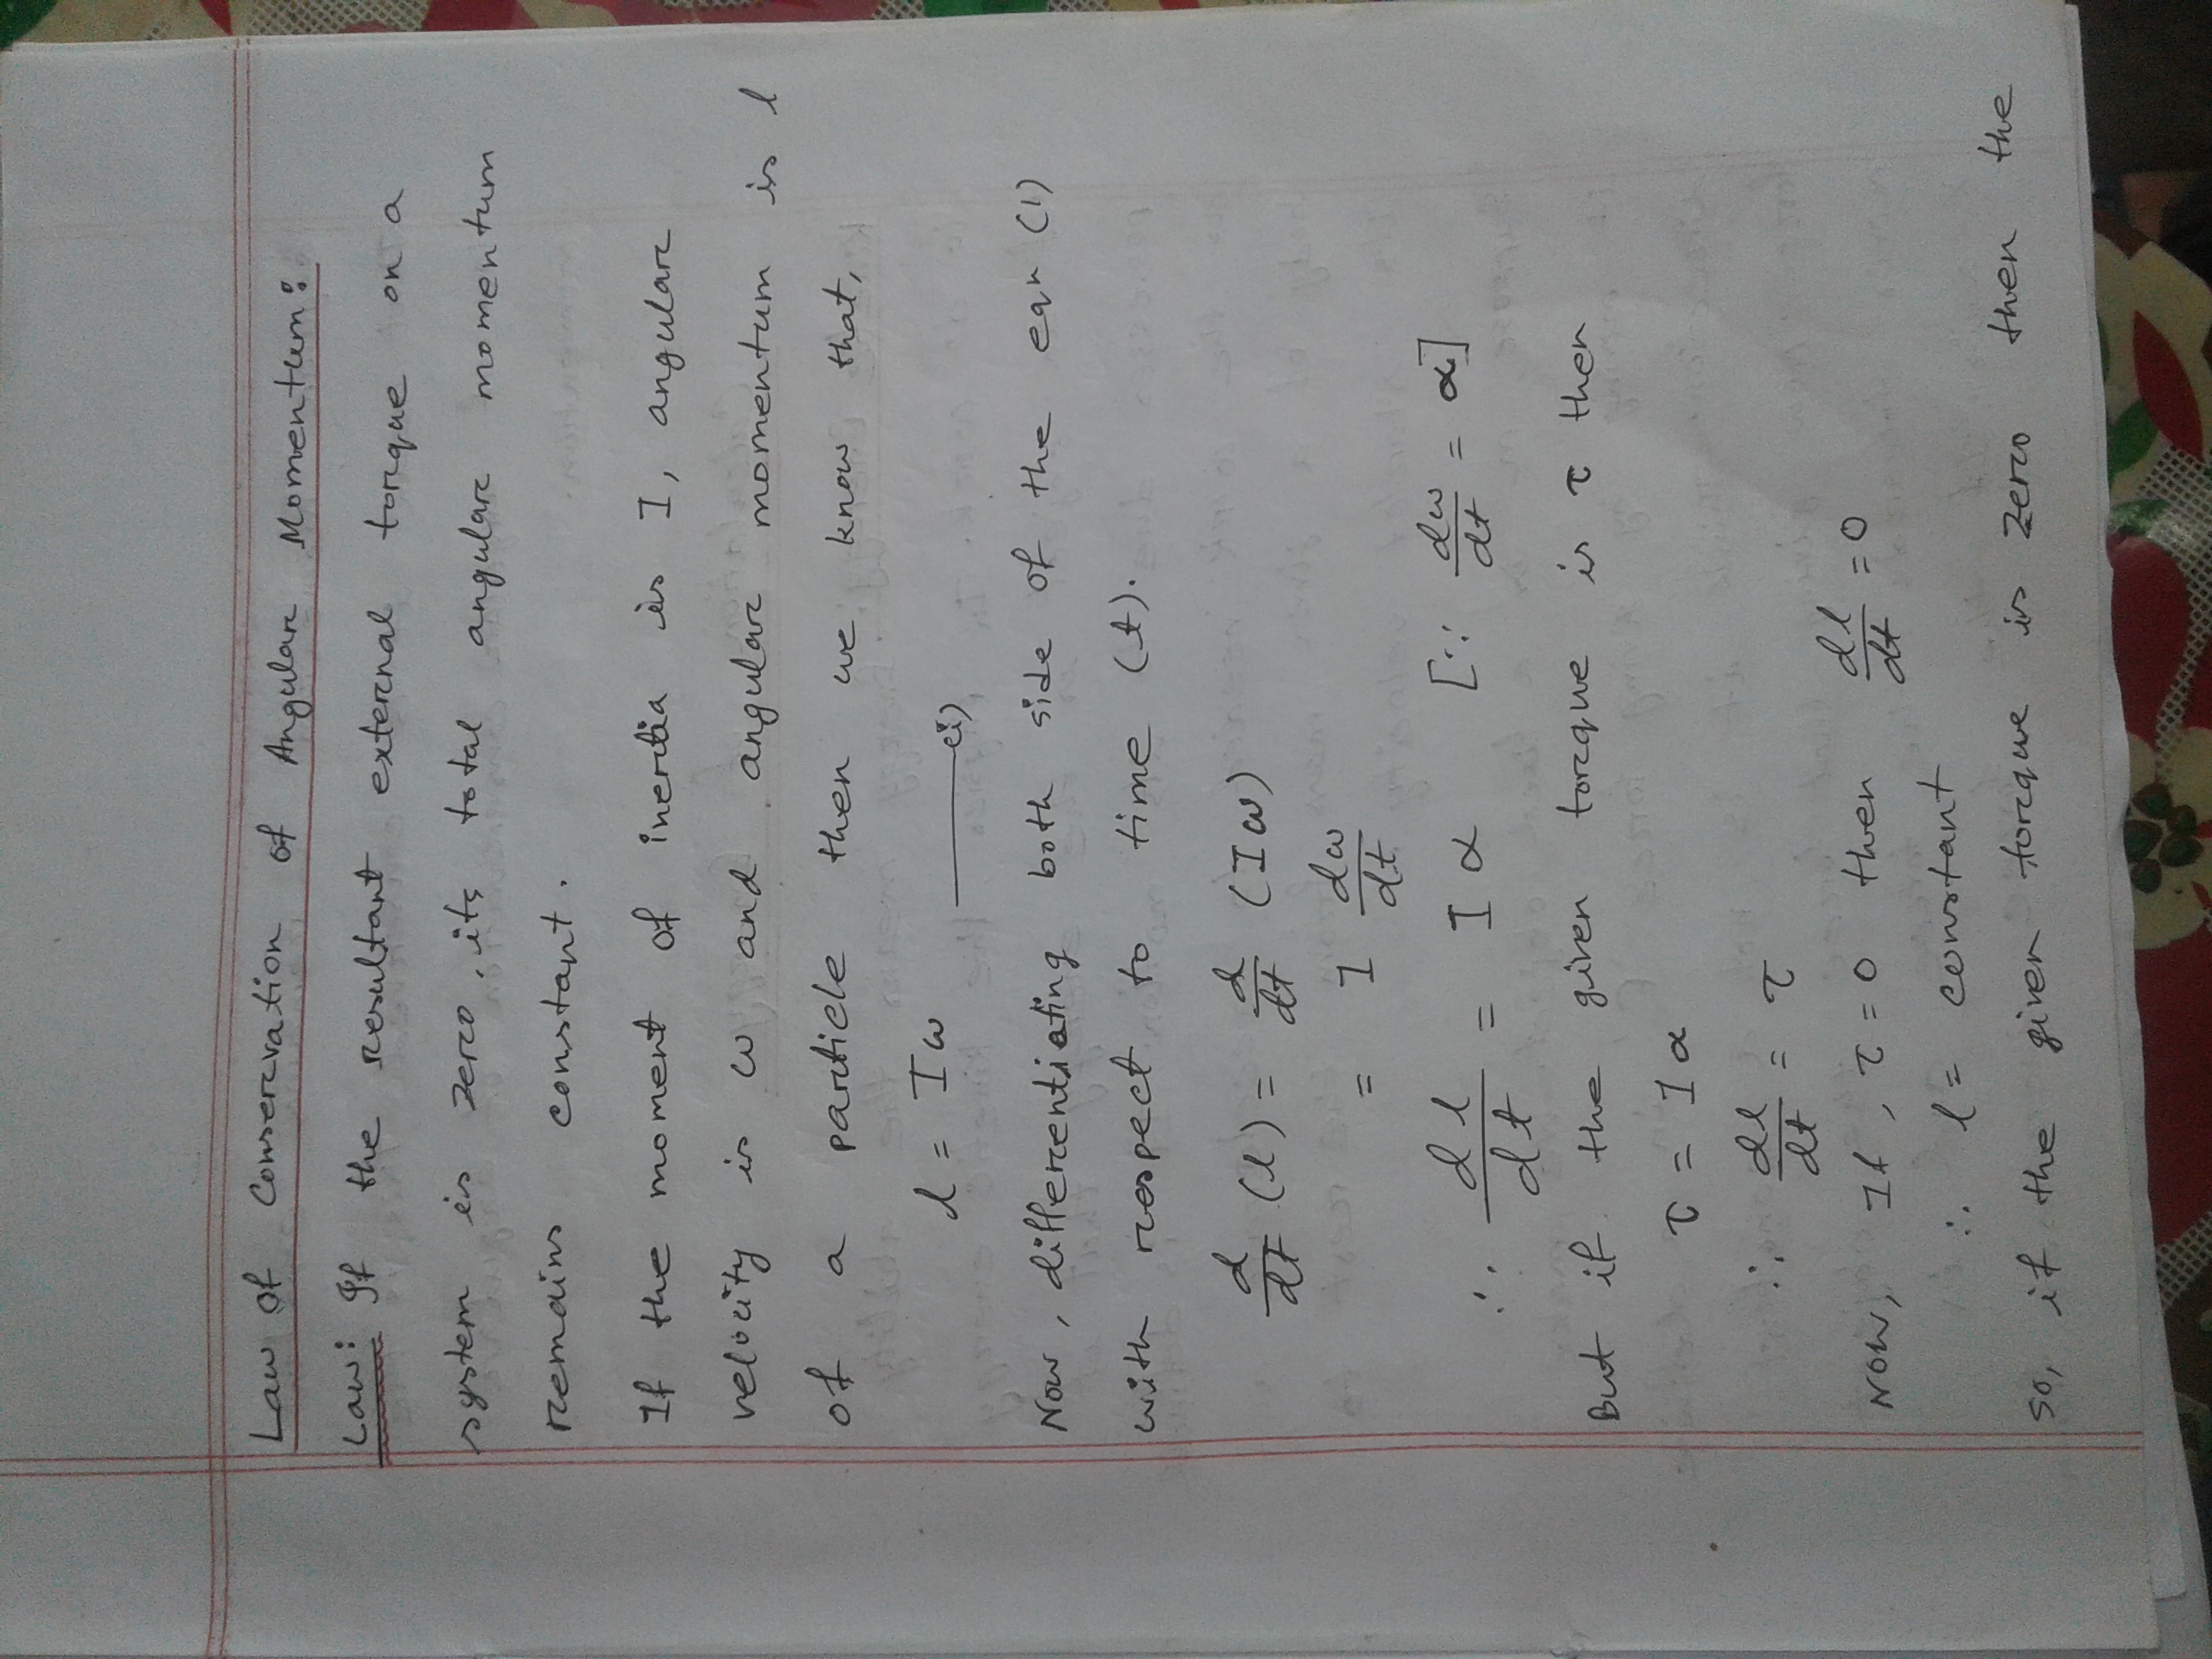 Law of Conservation of Angular Momentum:
Law: If the resultant external torque on a
system is zero, its total angular momentum
remains constant.
If the moment of inertia is I, angular
velocity is ω and angular momentum is l
of a particle then we know that,
l = Iω ———(i)
Now, differentiating both side of the eqn (1)
with respect to time (t).
d/dt (l) = d/dt (Iω)
= I dω/dt
∴ dl/dt = Iα [∵ dω/dt = α]
But if the given torque is τ then
τ = Iα
∴ dl/dt = τ
Now, If, τ = 0 then dl/dt = 0
∴ l = constant
So, if the given torque is zero then the